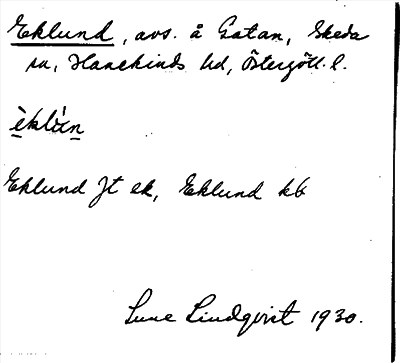 Eklund, avs. å Gatan, Skeda
sn, Hanekinds hd, Östergötl. l.
èklún
Eklund Jt ek, Eklund kb
Sune Lindqvist 1930.